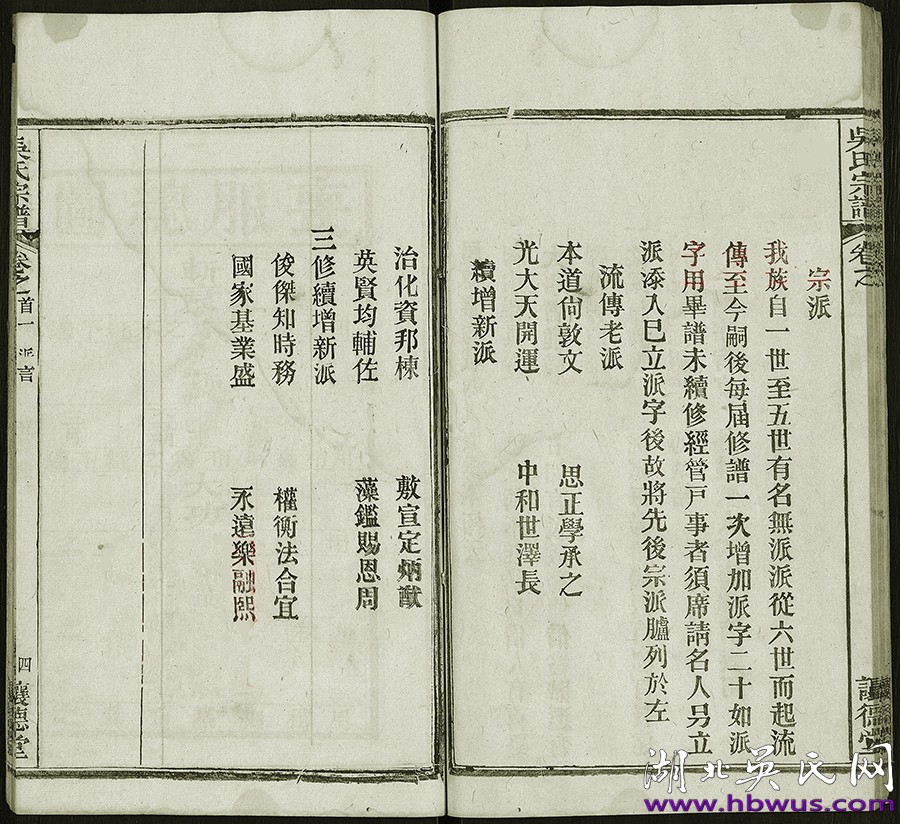 吳氏宗譜
卷之
讓德堂
宗派
我族自一世至五世有名無派派從六世而起流
傳至今嗣後每屆修譜一次增加派字二十如派
字用畢譜未續修經管戸事者須席請名人另立
派添入已立派字後故將先後宗派臚列於左
流傳老派
本道尙敦文 思正學承之
光大天開運 中和世澤長
續增新派
治化資邦棟 敷宣定炳猷
英賢均輔佐 藻鑑賜恩周
三修續增新派
俊傑知時務 權衡法合宜
國家基業盛 永遠樂融熙
吳氏宗譜
卷之首一 派言
四
讓德堂
湖北吳氏网
www.hbwus.com